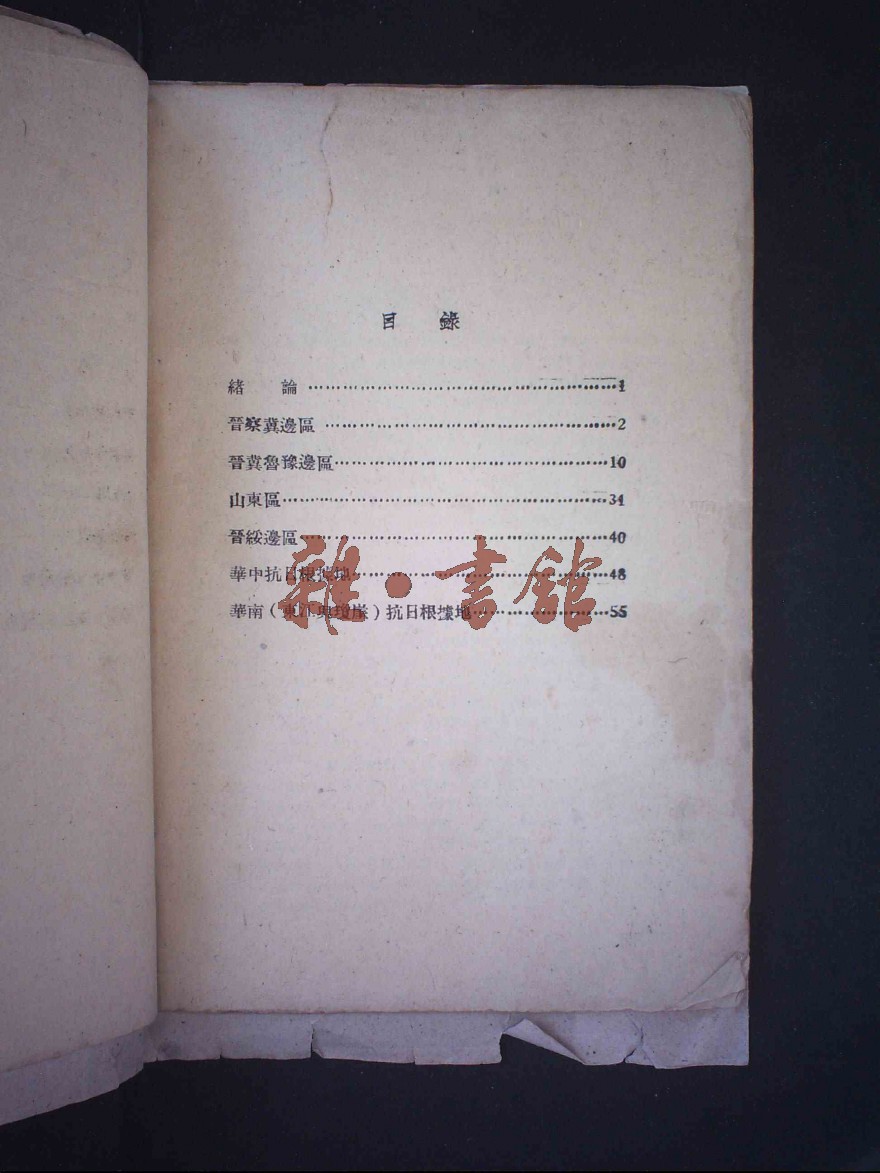 目　錄
緒　論……………………………………1
晉察冀邊區……………………………………2
晉冀魯豫邊區……………………………………10
山東區……………………………………34
晉綏邊區……………………………………40
華中抗日根據地……………………………………48
華南（東江與瓊崖）抗日根據地……………………………………55
雜·書館